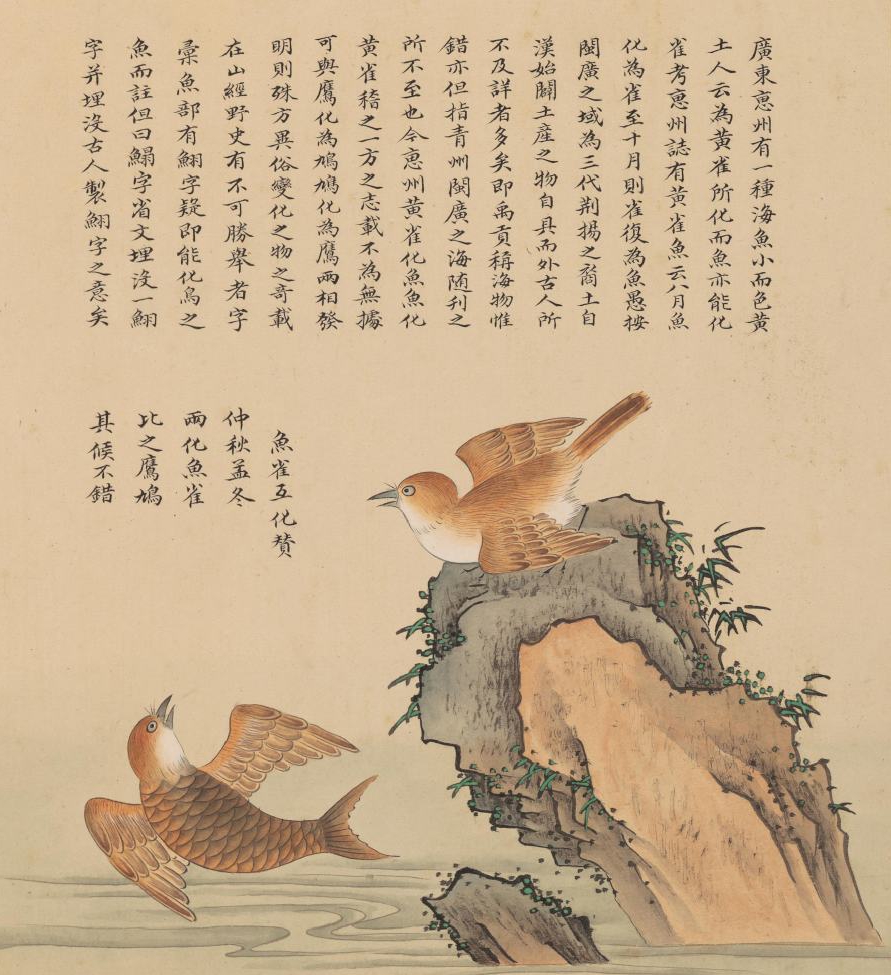 廣東惠州有一種海魚小而色黃
土人云為黃雀所化而魚亦能化
雀考惠州誌有黃雀魚云八月魚
化為雀至十月則雀復為魚愚按
閩廣之域為三代荆揚之裔土自
漢始闢土產之物自具而外古人所
不及詳者多矣即禹貢稱海物惟
錯亦但指青州閩廣之海随刋之
所不至也今惠州黃雀化魚魚化
黃雀稽之一方之志載不為無據
可與鷹化為鳩鳩化為鷹兩相發
明則殊方異俗變化之物之竒載
在山經野史有不可勝舉者字
彚魚部有䱄字疑即能化鳥之
魚而註但曰鰨字省文埋沒一䱄
字并埋沒古人製䱄字之意矣
魚雀互化賛
仲秋孟冬
兩化魚雀
比之鷹鳩
其候不錯